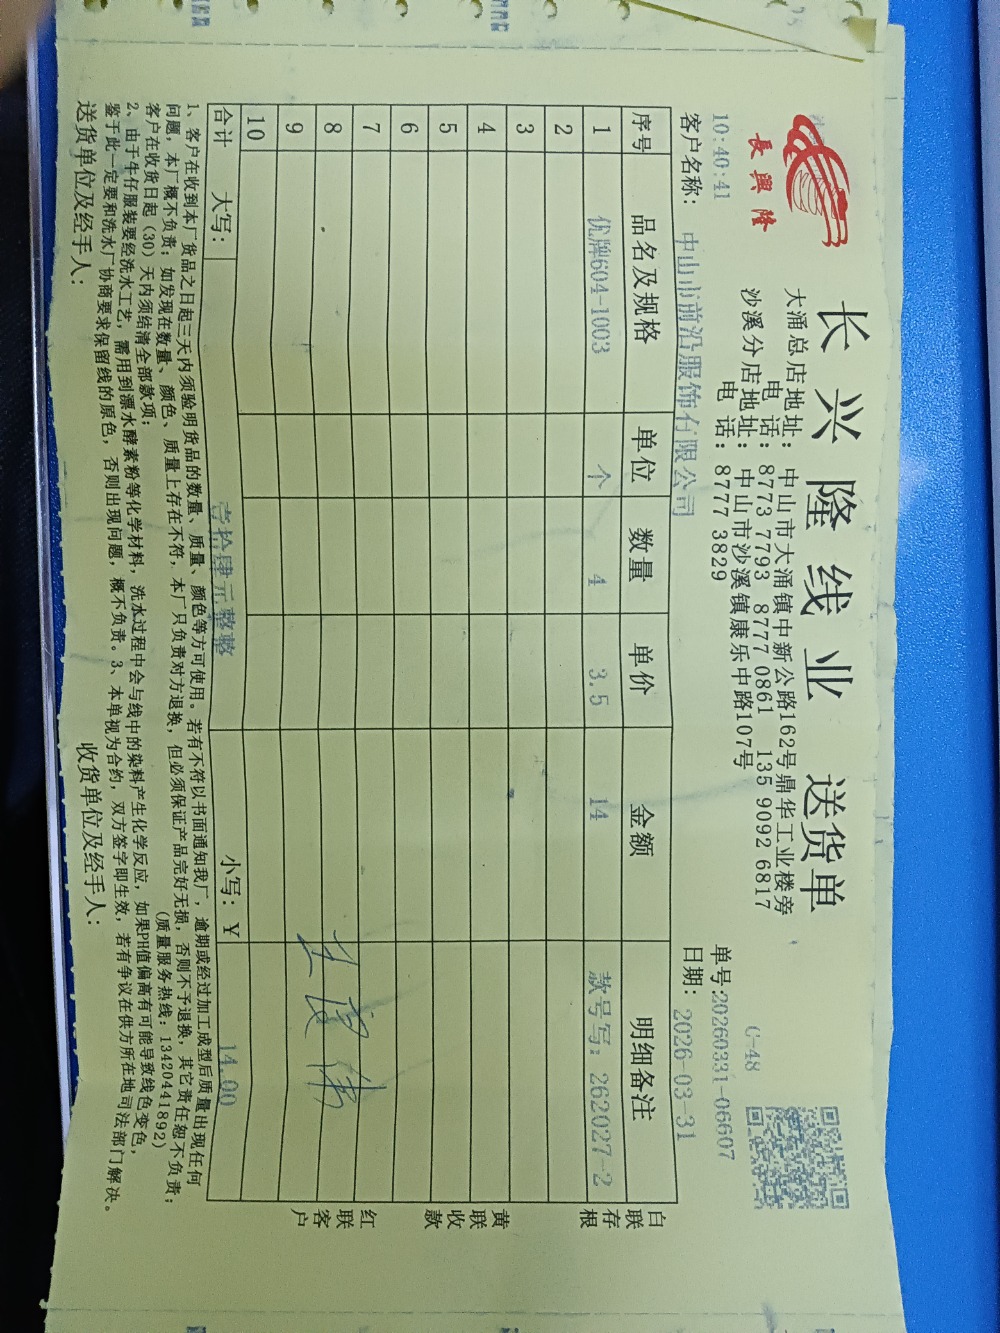 長興隆
长兴隆线业 送货单
大涌总店地址：中山市大涌镇中新公路162号鼎华工业楼旁
电 话：8773 7793 8777 0861 135 9092 6817
沙溪分店地址：中山市沙溪镇康乐中路107号
电 话：8777 3829
G-48
10:40:41
单号:20260331-06607
客户名称：中山市前沿服饰有限公司
日期：2026-03-31
序号 品名及规格 单位 数量 单价 金额 明细备注
1 优牌604-1003 个 4 3.5 14 款号写：262027-2
2
3
4
5
6
7
8
9
10
合计 大写：壹拾肆元整整 小写：￥ 14.00
白联存根
黄联收款
红联客户
1、客户在收到本厂货品之日起三天内须验明货品的数量、质量、颜色等方可使用。若有不符以书面通知我厂，逾期或经过加工成型后质量出现任何
问题，本厂概不负责；如发现在数量、颜色、质量上存在不符，本厂只负责对方退换，但必须保证产品完好无损，否则不予退换，其它责任恕不负责；
客户在收货日起（30）天内须结清全部款项；（质量服务热线：13420441892）
2、由于牛仔服装要经洗水工艺，需用到漂水酵素粉等化学材料，洗水过程中会与线中的染料产生化学反应，如果PH值偏高有可能导致线色变色，
鉴于此一定要和洗水厂协商要求保留线的原色，否则出现问题，概不负责。3、本单视为合约，双方签字即生效，若有争议在供方所在地司法部门解决。
送货单位及经手人： 收货单位及经手人：